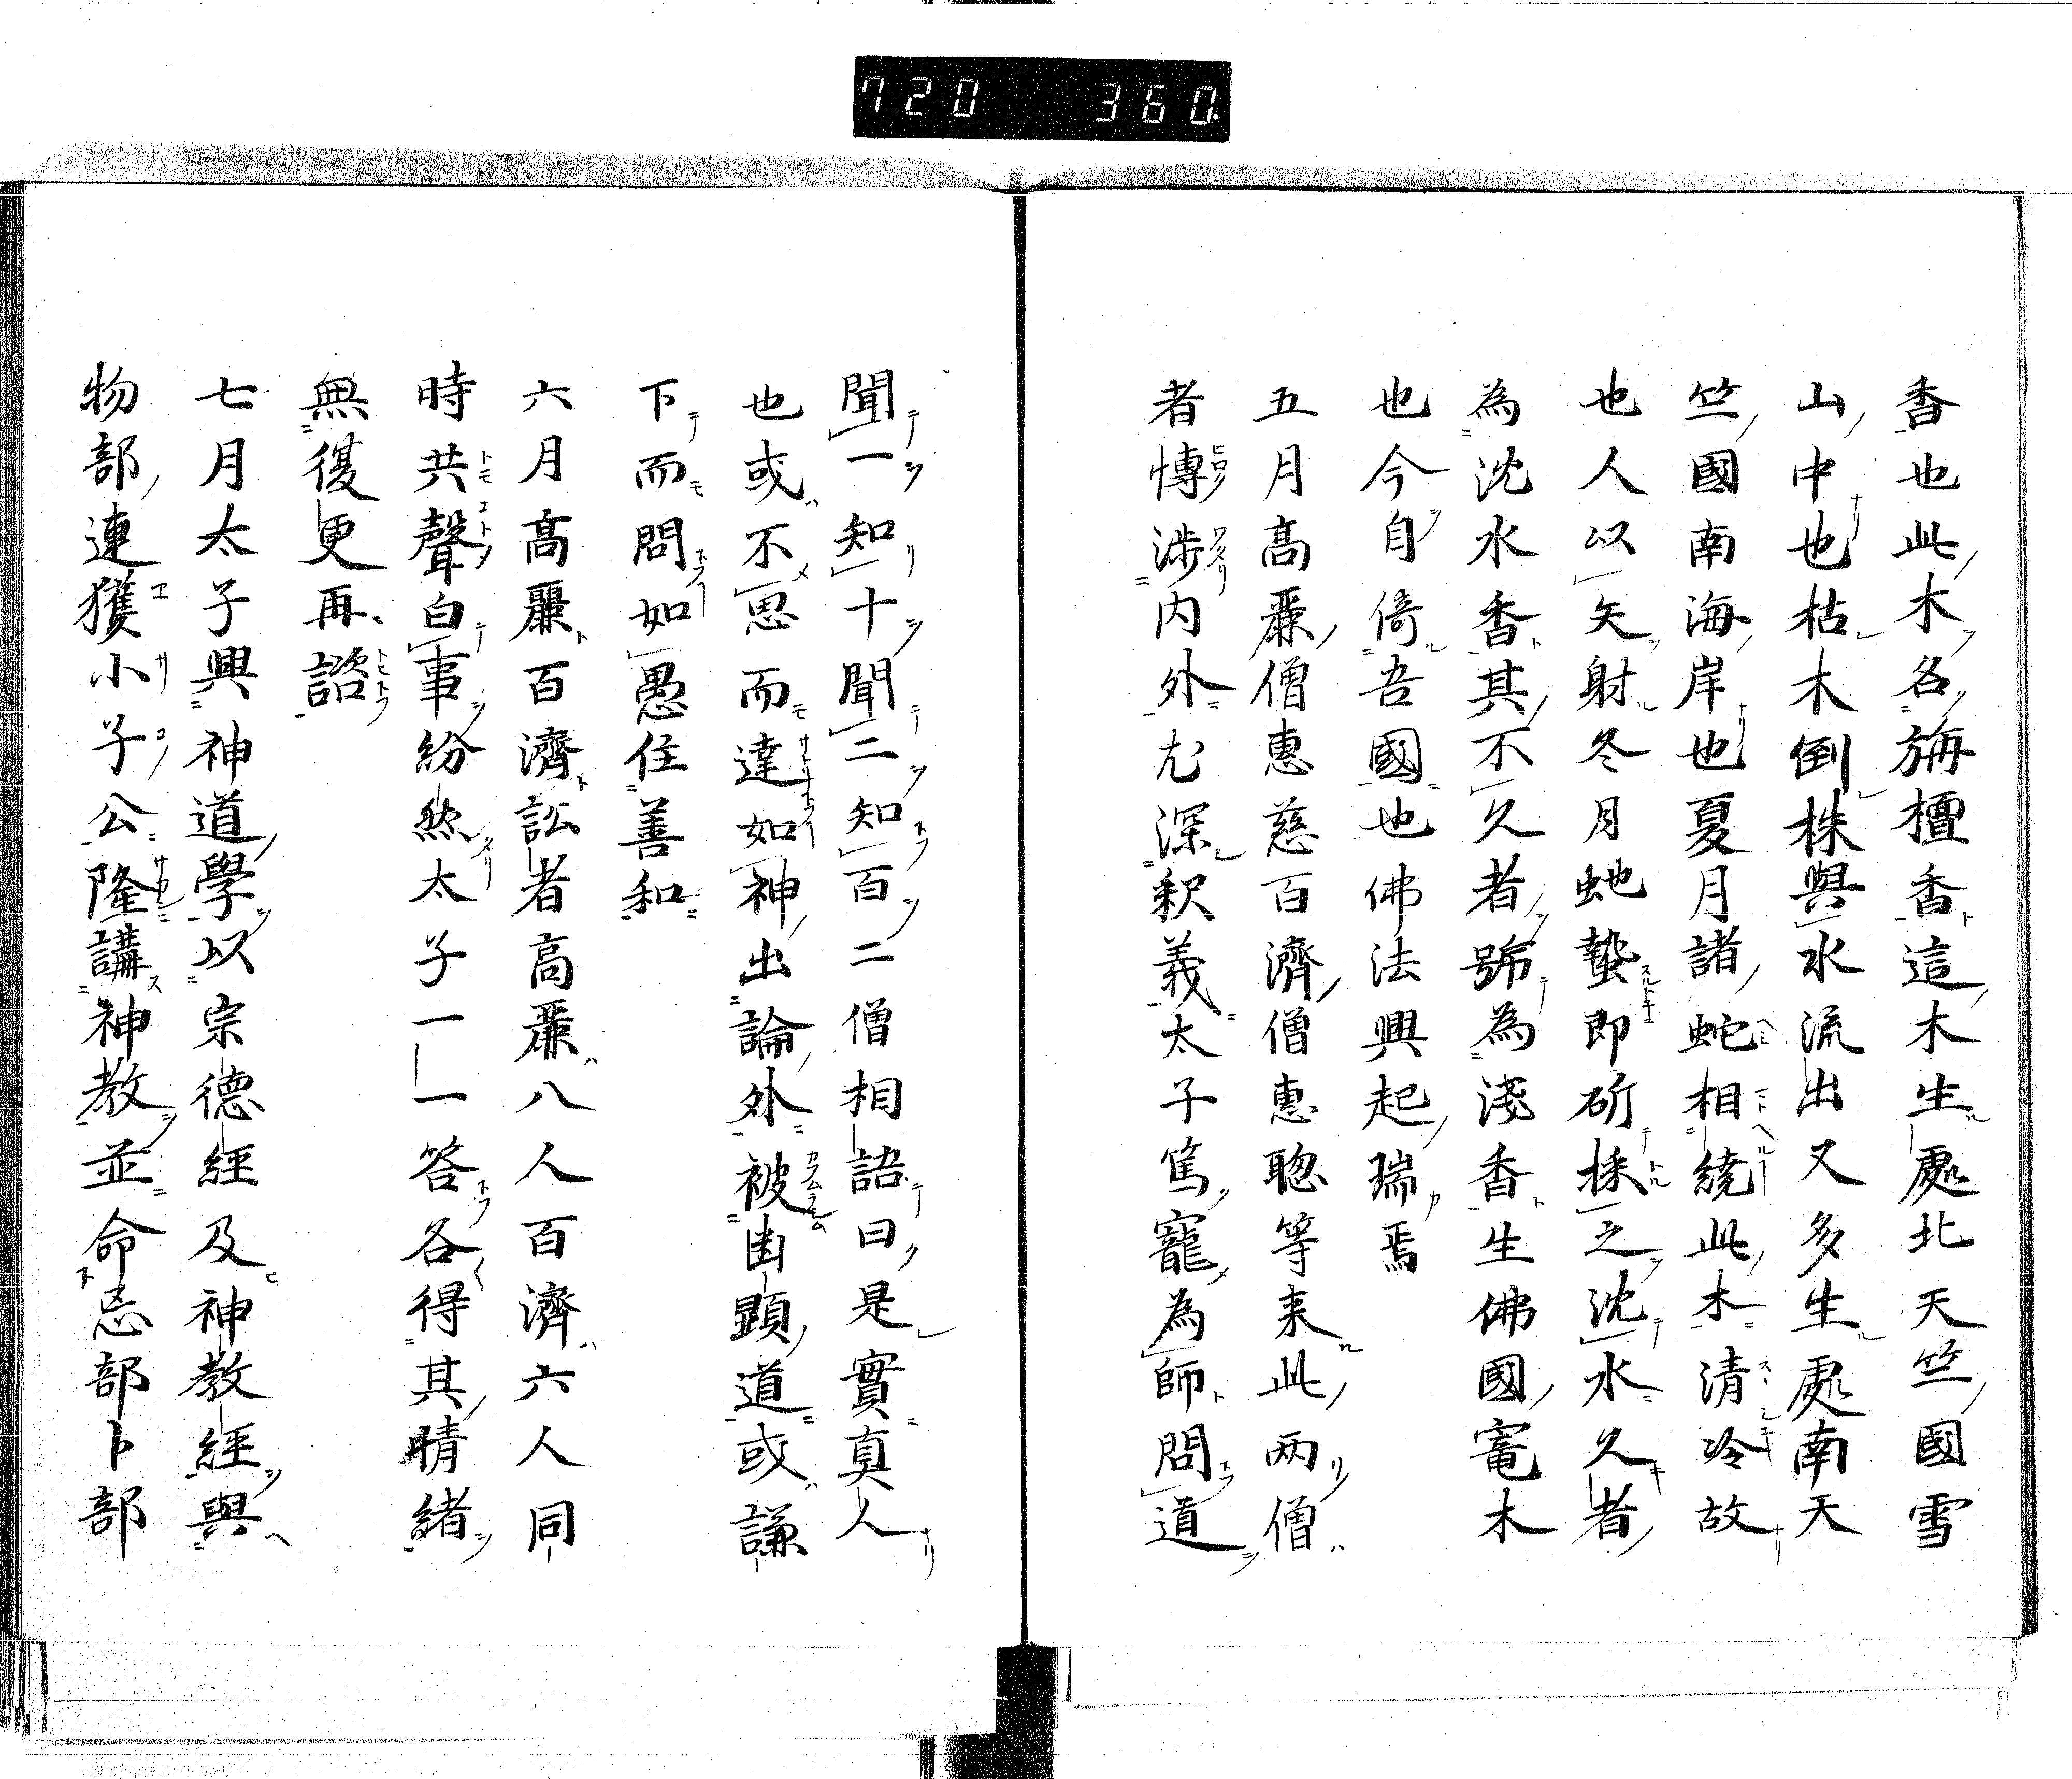 720 360.
香也此木各旃檀香這木生處北天竺國雪
山中也枯木倒株與水流出又多生處南天
竺國南海岸也夏月諸蛇相繞此木清冷故
也人以矢射冬月虵蟄即斫採之沈水久者
為沈水香其不久者號為淺香生佛國竃木
也今自倚吾國也佛法興起瑞焉
五月高麗僧惠慈百濟僧惠聡等来此両僧
者慱渉内外尤深釈義太子篤寵為師問道
聞一知十聞二知百二僧相語曰是實真人
也或不思而達如神出論外被幽顕道或謙
下而問如愚住善和
六月髙麗百濟訟者高麗八人百濟六人同
時共聲白事紛然太子一一答各得其晴緒
無復更再諮
七月太子興神道學以宗德經及神教經與
物部連獲小子公隆講神教並命忌部卜部